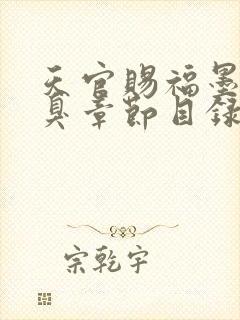 天官賜福墨
真章節目錄
宗乾宇